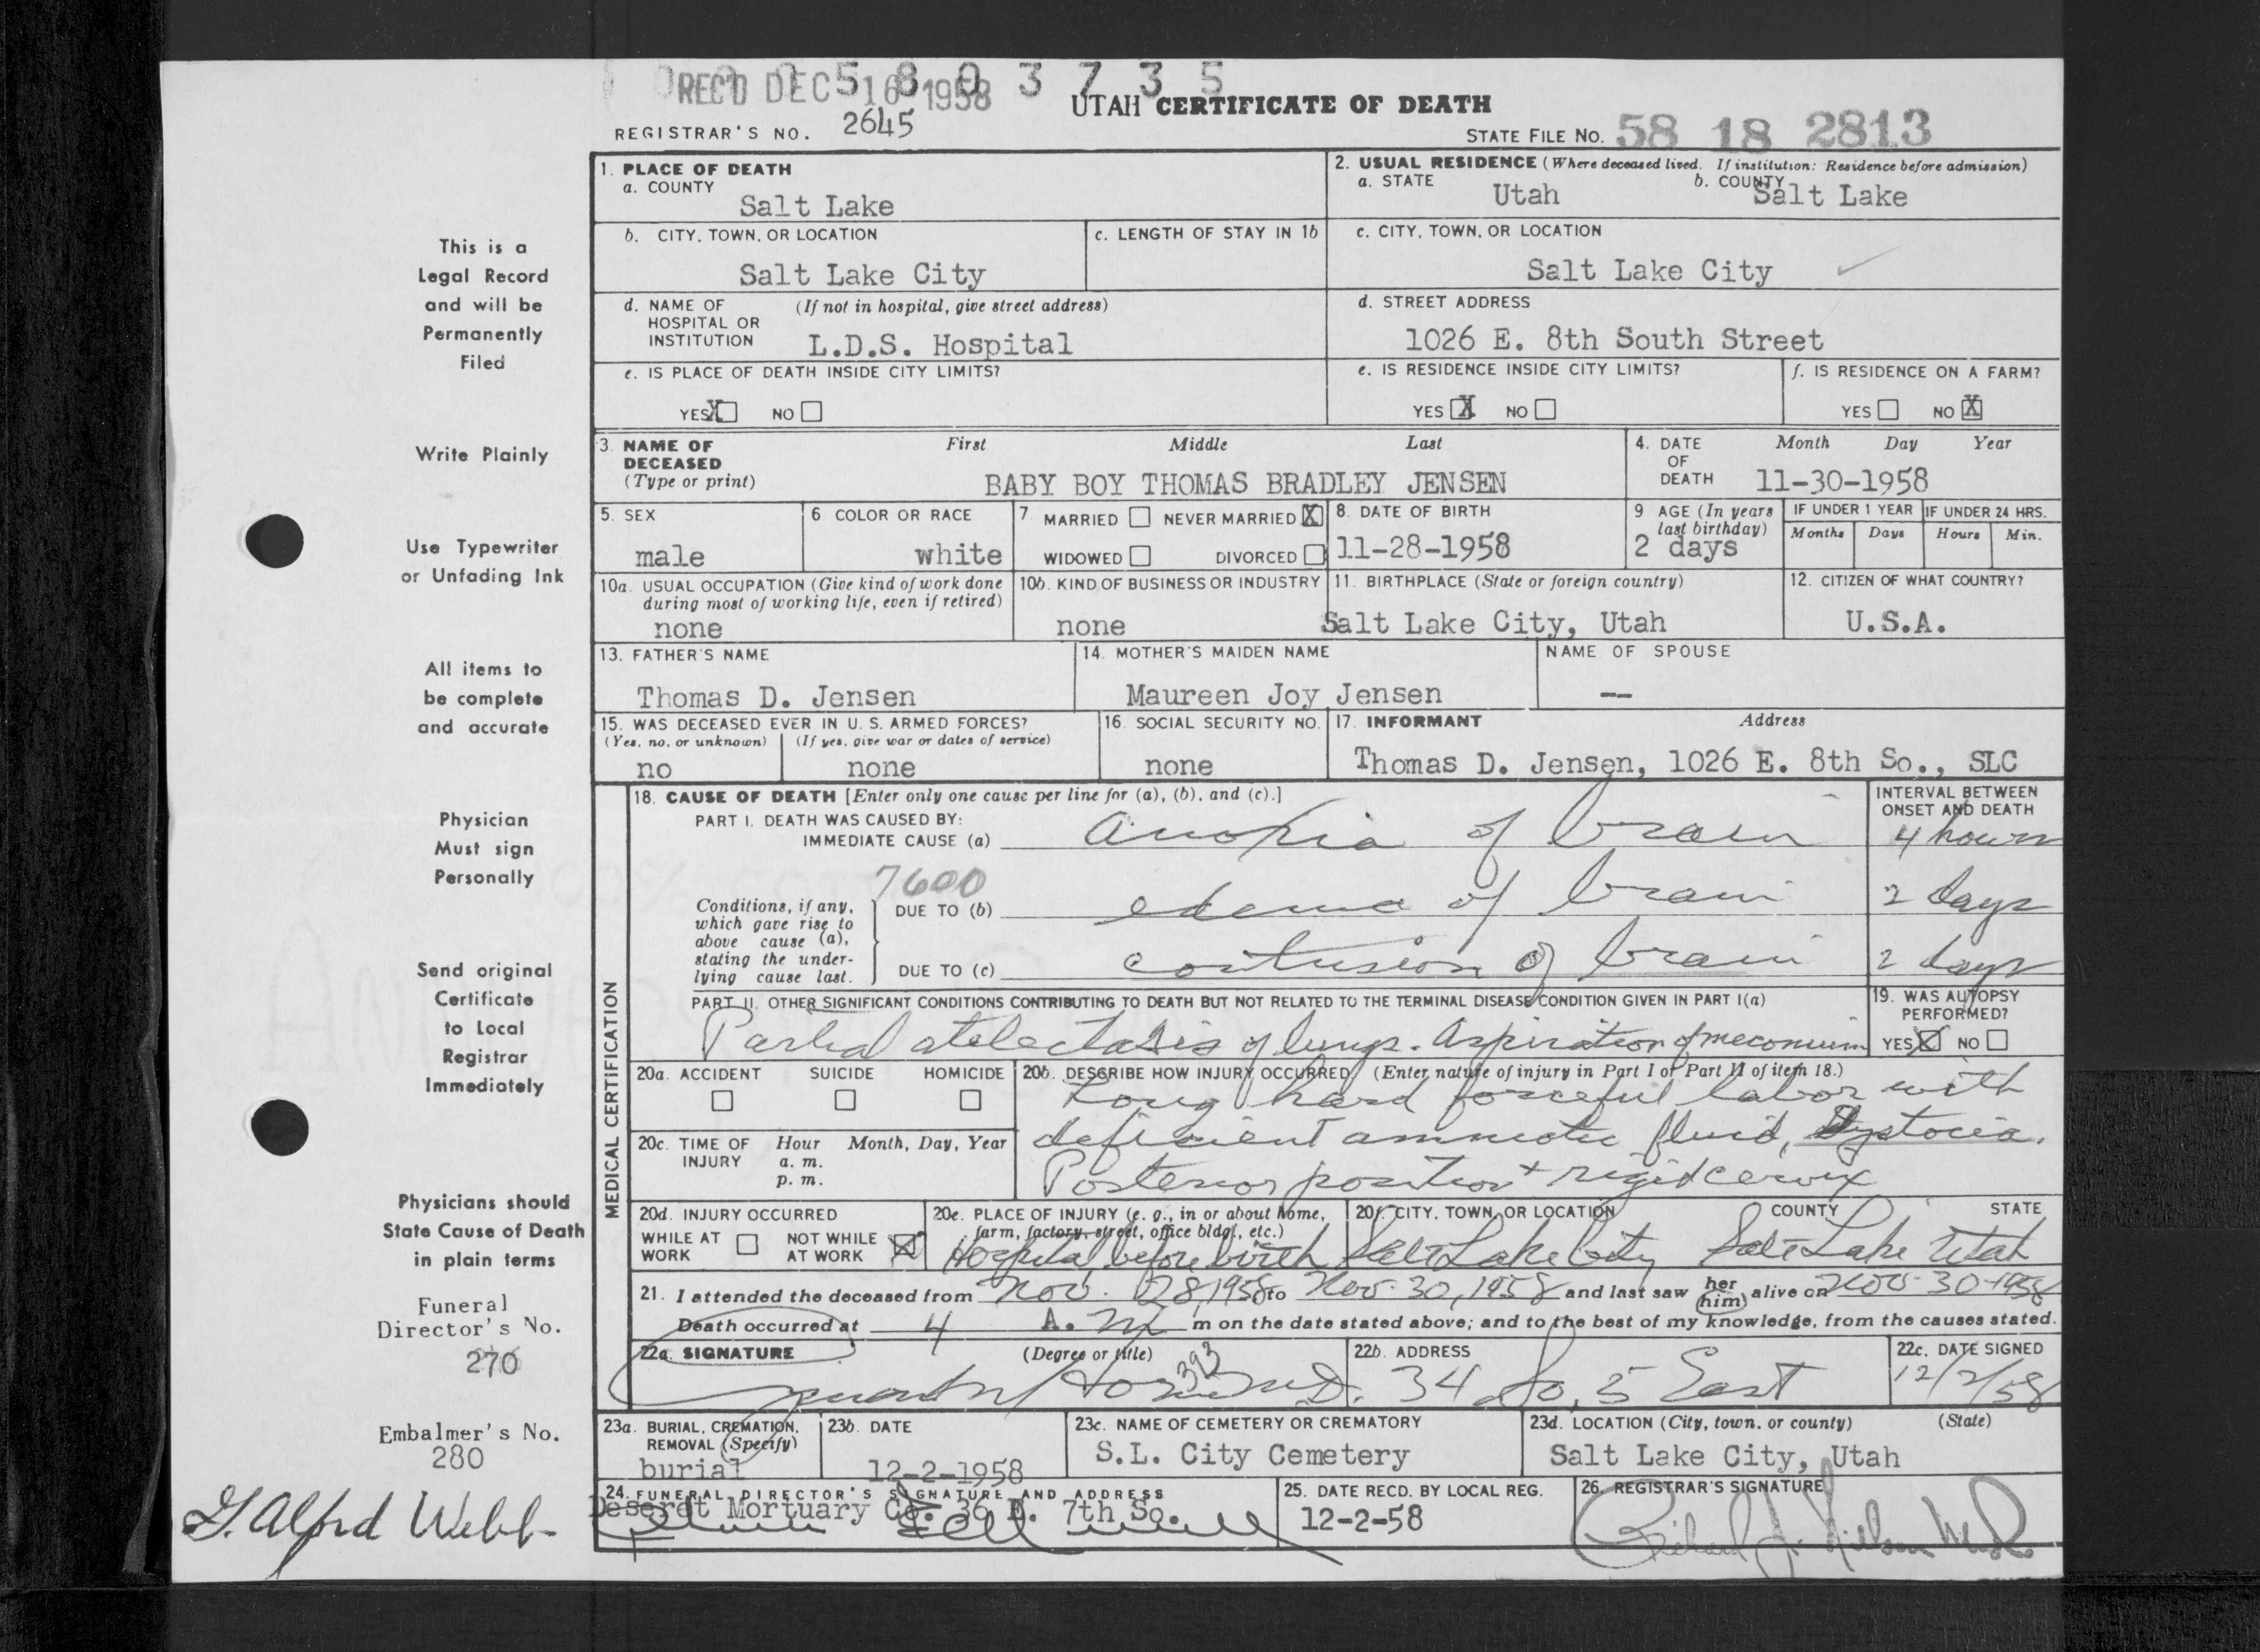 REC'D DEC 16 1958
0 0 0 5 8 0 3 7 3 5
UTAH CERTIFICATE OF DEATH
REGISTRAR'S NO. 2645
STATE FILE NO. 58 18 2813
1. PLACE OF DEATH
a. COUNTY
Salt Lake
2. USUAL RESIDENCE (Where deceased lived. If institution: Residence before admission)
a. STATE Utah b. COUNTY Salt Lake
b. CITY, TOWN, OR LOCATION
Salt Lake City
c. LENGTH OF STAY IN 1b
c. CITY, TOWN, OR LOCATION
Salt Lake City
d. NAME OF (If not in hospital, give street address)
HOSPITAL OR
INSTITUTION L.D.S. Hospital
d. STREET ADDRESS
1026 E. 8th South Street
e. IS PLACE OF DEATH INSIDE CITY LIMITS?
YES X NO
e. IS RESIDENCE INSIDE CITY LIMITS?
YES X NO
f. IS RESIDENCE ON A FARM?
YES NO X
3. NAME OF DECEASED (Type or print)
First Middle Last
BABY BOY THOMAS BRADLEY JENSEN
4. DATE OF DEATH
Month Day Year
11-30-1958
5. SEX
male
6 COLOR OR RACE
white
7 MARRIED NEVER MARRIED X
WIDOWED DIVORCED
8. DATE OF BIRTH
11-28-1958
9 AGE (In years last birthday)
2 days
IF UNDER 1 YEAR
Months Days
IF UNDER 24 HRS.
Hours Min.
10a. USUAL OCCUPATION (Give kind of work done
during most of working life, even if retired)
none
10b. KIND OF BUSINESS OR INDUSTRY
none
11. BIRTHPLACE (State or foreign country)
Salt Lake City, Utah
12. CITIZEN OF WHAT COUNTRY?
U.S.A.
13. FATHER'S NAME
Thomas D. Jensen
14. MOTHER'S MAIDEN NAME
Maureen Joy Jensen
NAME OF SPOUSE
--
15. WAS DECEASED EVER IN U. S. ARMED FORCES?
(Yes, no, or unknown) (If yes, give war or dates of service)
no none
16. SOCIAL SECURITY NO.
none
17. INFORMANT Address
Thomas D. Jensen, 1026 E. 8th So., SLC
MEDICAL CERTIFICATION
18. CAUSE OF DEATH [Enter only one cause per line for (a), (b), and (c).]
INTERVAL BETWEEN
ONSET AND DEATH
PART I. DEATH WAS CAUSED BY:
IMMEDIATE CAUSE (a) Anoxia of brain 4 hours
7600
Conditions, if any,
which gave rise to
above cause (a),
stating the under-
lying cause last.
DUE TO (b) edema of brain 2 days
DUE TO (c) contusion of brain 2 days
PART II. OTHER SIGNIFICANT CONDITIONS CONTRIBUTING TO DEATH BUT NOT RELATED TO THE TERMINAL DISEASE CONDITION GIVEN IN PART I(a)
Partial atelectasis of lungs. Aspiration of meconium
19. WAS AUTOPSY
PERFORMED?
YES X NO
20a. ACCIDENT SUICIDE HOMICIDE
20b. DESCRIBE HOW INJURY OCCURRED (Enter nature of injury in Part I or Part II of item 18.)
Long hard forceful labor with
deficient amniotic fluid, Dystocia.
Posterior position + rigid cervix
20c. TIME OF INJURY
Hour Month, Day, Year
a. m.
p. m.
20d. INJURY OCCURRED
WHILE AT WORK
NOT WHILE AT WORK X
20e. PLACE OF INJURY (e. g., in or about home,
farm, factory, street, office bldg., etc.)
Hospital before birth
20f. CITY, TOWN, OR LOCATION COUNTY STATE
Salt Lake City Salt Lake Utah
21. I attended the deceased from Nov. 28, 1958 to Nov. 30, 1958 and last saw her him alive on Nov. 30 1958
Death occurred at 4 A. M m on the date stated above; and to the best of my knowledge, from the causes stated.
22a. SIGNATURE (Degree or title)
393
M.D.
22b. ADDRESS
34 So. 5 East
22c. DATE SIGNED
12/2/58
23a. BURIAL, CREMATION,
REMOVAL (Specify)
burial
23b. DATE
12-2-1958
23c. NAME OF CEMETERY OR CREMATORY
S.L. City Cemetery
23d. LOCATION (City, town, or county) (State)
Salt Lake City, Utah
24. FUNERAL DIRECTOR'S SIGNATURE AND ADDRESS
Deseret Mortuary Co. 36 E. 7th So.
25. DATE RECD. BY LOCAL REG.
12-2-58
26. REGISTRAR'S SIGNATURE
This is a
Legal Record
and will be
Permanently
Filed
Write Plainly
Use Typewriter
or Unfading Ink
All items to
be complete
and accurate
Physician
Must sign
Personally
Send original
Certificate
to Local
Registrar
Immediately
Physicians should
State Cause of Death
in plain terms
Funeral
Director's No.
270
Embalmer's No.
280
G. Alfred Webb